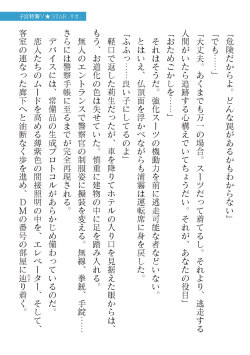 子宮特警リオ★STAR、リオ
「危険だからよ。どんな罠があるかもわからない」
「でも……」
「大丈夫。あくまでも万一の場合。スーツだって着てるし。それより、逃走する
人間がいたら追跡する心構えでいてちょうだい。それが、あなたの役目」
「おためごかしを……」
それはそうだ。強化スーツの機動力を前に逃走可能な者などいない。
とはいえ、仏頂面を浮べながらも清霧は運転席に身を戻した。
「ふふっ……良い子にしてるのよ」
軽口で返した莉生だったが、車を降りてホテルの入り口を見据えた眼からは、
もう、お道化の色は失せていた。慎重に建物の中に足を踏み入れる。
無人のエントランスで警察官の制服姿に擬装を変える。無線、拳銃、手錠……
さらには警察手帳に至るまでが完全再現される。
デバイスには、常備品の生成プロトコルがあらかじめ備わっているのだ。
恋人たちのムードを高める薄紫色の間接照明の中を、エレベーター、そして、
客室の連なった廊下へと油断なく歩を進め、DMの番号の部屋に辿り着く。